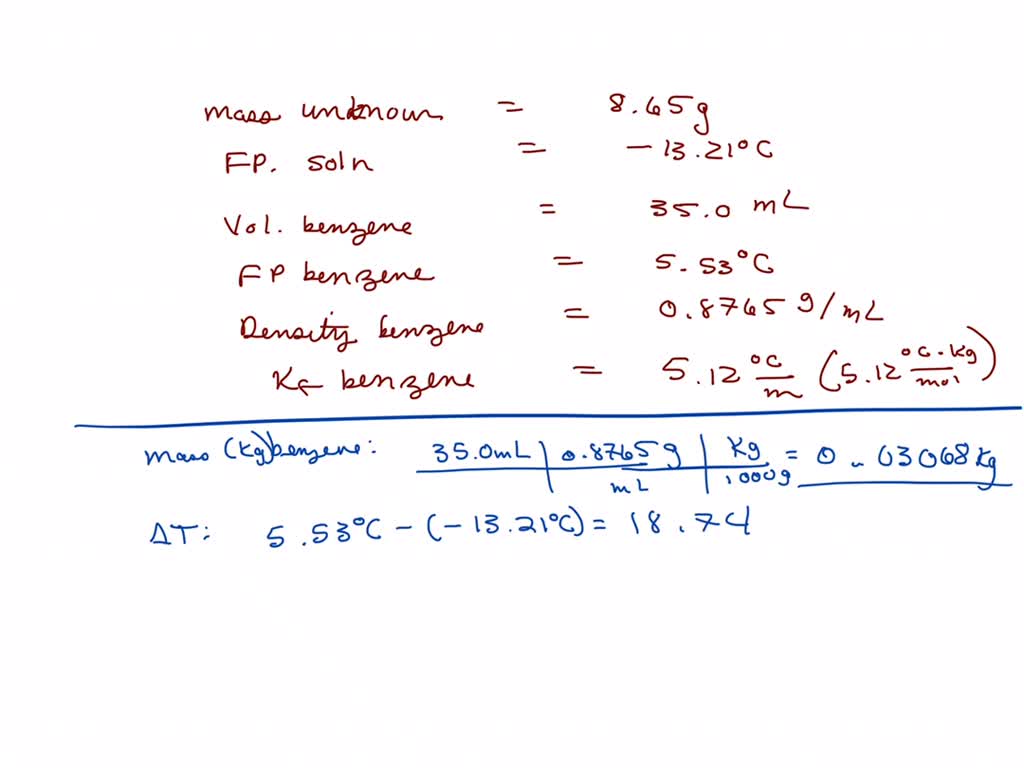 mass unknown = 8.65g
FP. soln = -13.21°C
Vol. benzene = 35.0 mL
FP benzene = 5.53°C
Density benzene = 0.8765 g/mL
Kf benzene = 5.12 °C/m (5.12 °C·kg/mol)
mass (kg) benzene: 35.0mL | 0.8765g/mL | Kg/1000g = 0.03068kg
ΔT: 5.53°C - (-13.21°C) = 18.74